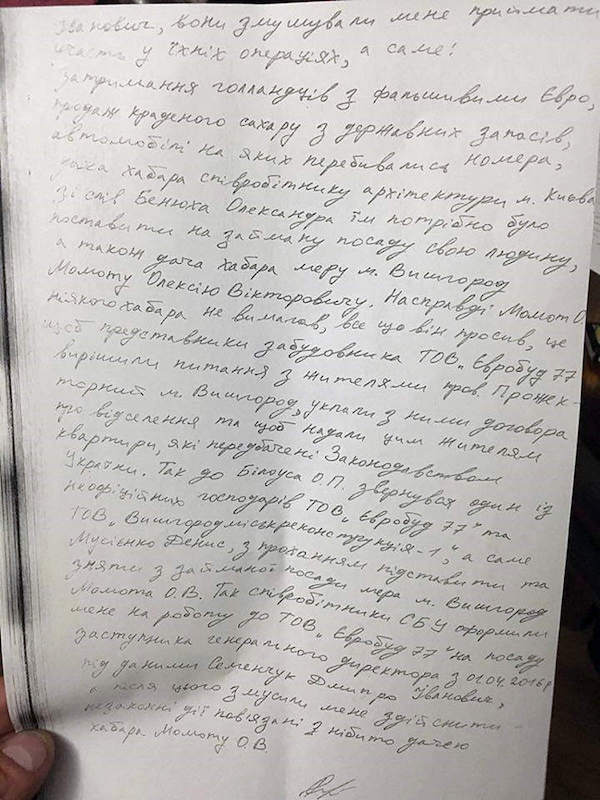 Іванович, вони змушували мене приймати
участь у їхніх операціях, а саме!
затримання голландців з фальшивими Євро,
продаж краденого сахару з державних запасів,
автомобілі на яких перебивались номера,
дача хабара співробітнику архітектури м. Києва
зі слів Бенюха Олександра їм потрібно було
поставити на займану посаду свою людину,
а також дача хабара меру м. Вишгород
Момоту Олексію Вікторовичу. Насправді Момот О.
ніякого хабара не вимагав, все що він просив, це
щоб представники забудовника ТОВ „Євробуд 77
вирішили питання з жителями пров. Прожек-
торний м. Вишгород, уклали з ними договора
про відселення та щоб надали цим жителям
квартири, які передбачені Законодавством
України. Так до Білоуса О.П. звернувся один із
неофіційних господарів ТОВ „Євробуд 77" та
ТОВ „Вишгородміськреконструкція-1", а саме
Мусієнко Денис, з проханням підставити та
зняти з займаної посади мера м. Вишгород
Момота О.В. Так співробітники СБУ оформили
мене на роботу до ТОВ „Євробуд 77" на посаду
заступника генерального директора з 01.04.2016р
під даними Семенчук Дмитро Іванович,
а після цього змусили мене здійснити
незаконні дії пов'язані з нібито дачею
хабара Момоту О.В.